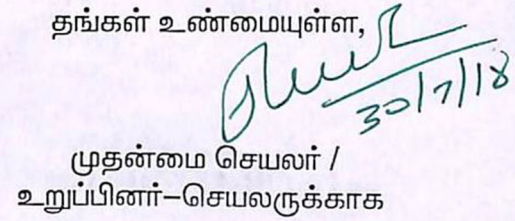 தங்கள் உண்மையுள்ள,
30/7/18
முதன்மை செயலர் /
உறுப்பினர்–செயலருக்காக